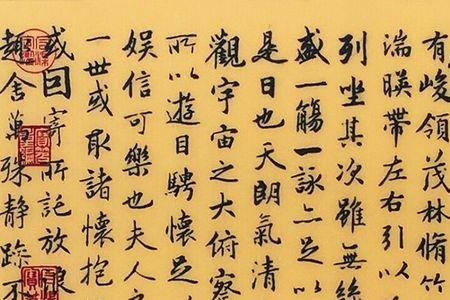 有峻領茂林脩竹
湍暎帶左右引以
列坐其次雖無絲
盛一觴一詠亦足以
是日也天朗氣清
觀宇宙之大俯察
所以遊目騁懷足
娛信可樂也夫人之
一世或取諸懷抱
或因寄所託放浪
趣舍萬殊靜躁不